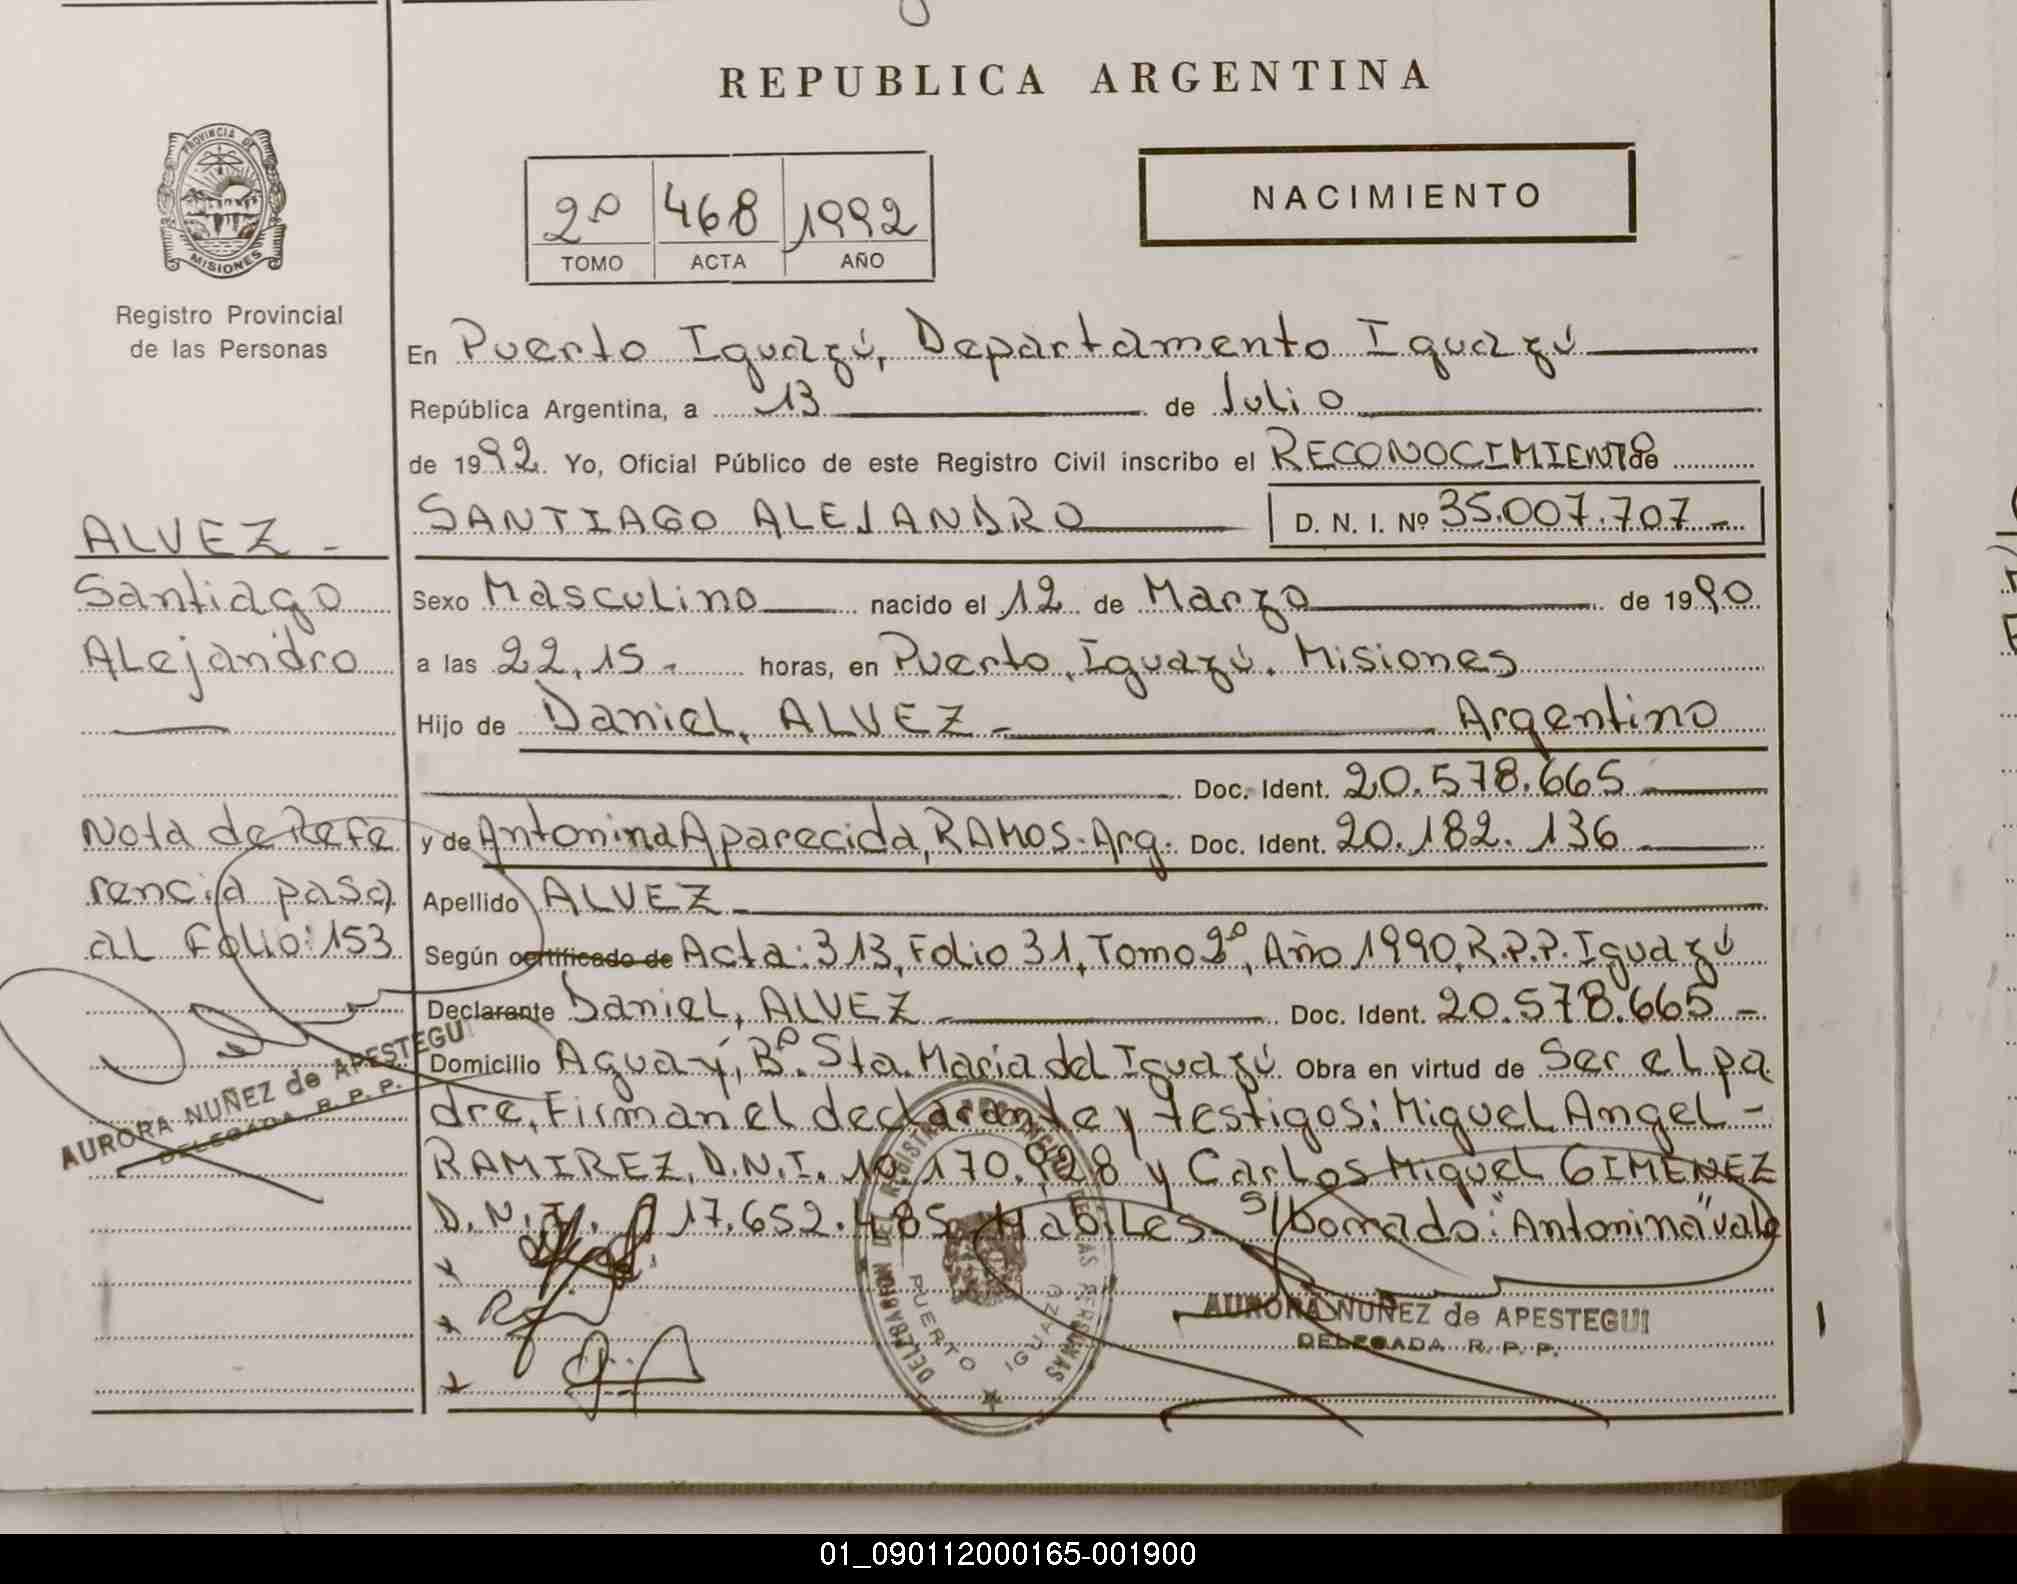 REPUBLICA ARGENTINA
PROVINCIA DE
MISIONES
Registro Provincial
de las Personas
2º 468 1992
TOMO ACTA AÑO
NACIMIENTO
En Puerto Iguazú, Departamento Iguazú
República Argentina, a 13 de Julio
de 1992. Yo, Oficial Público de este Registro Civil inscribo el RECONOCIMIENTO de
SANTIAGO ALEJANDRO D. N. I. Nº 35.007.707 -
Sexo Masculino nacido el 12 de Marzo de 1990
a las 22,15 - horas, en Puerto Iguazú. Misiones
Hijo de Daniel, ALVEZ - Argentino
Doc. Ident. 20.578.665
y de Antonina Aparecida, RAMOS - Arg. Doc. Ident. 20.182.136
Apellido ALVEZ -
Según certificado de Acta: 313, Folio 31, Tomo 2º, Año 1990, R.P.P. Iguazú
Declarante Daniel, ALVEZ - Doc. Ident. 20.578.665 -
Domicilio Aguay-í, Bº. Sta. Maria del Iguazú Obra en virtud de Ser el pa
dre, Firman el declarante y testigos: Miguel Angel -
RAMIREZ, D.N.I. 170.928 y Carlos Miguel GIMENEZ
D.N.I. 17.652.485 Habiles. S/borrado: "Antonina" vale
AURORA NUÑEZ de APESTEGUI
DELEGADA R. P. P.
DELEGACION DEL REGISTRO PROVINCIAL DE LAS PERSONAS
PUERTO IGUAZU
ALVEZ -
Santiago
Alejandro
Nota de Refe
rencia pasa
al Folio: 153
AURORA NUÑEZ de APESTEGUI
DELEGADA R. P. P.
01_090112000165-001900